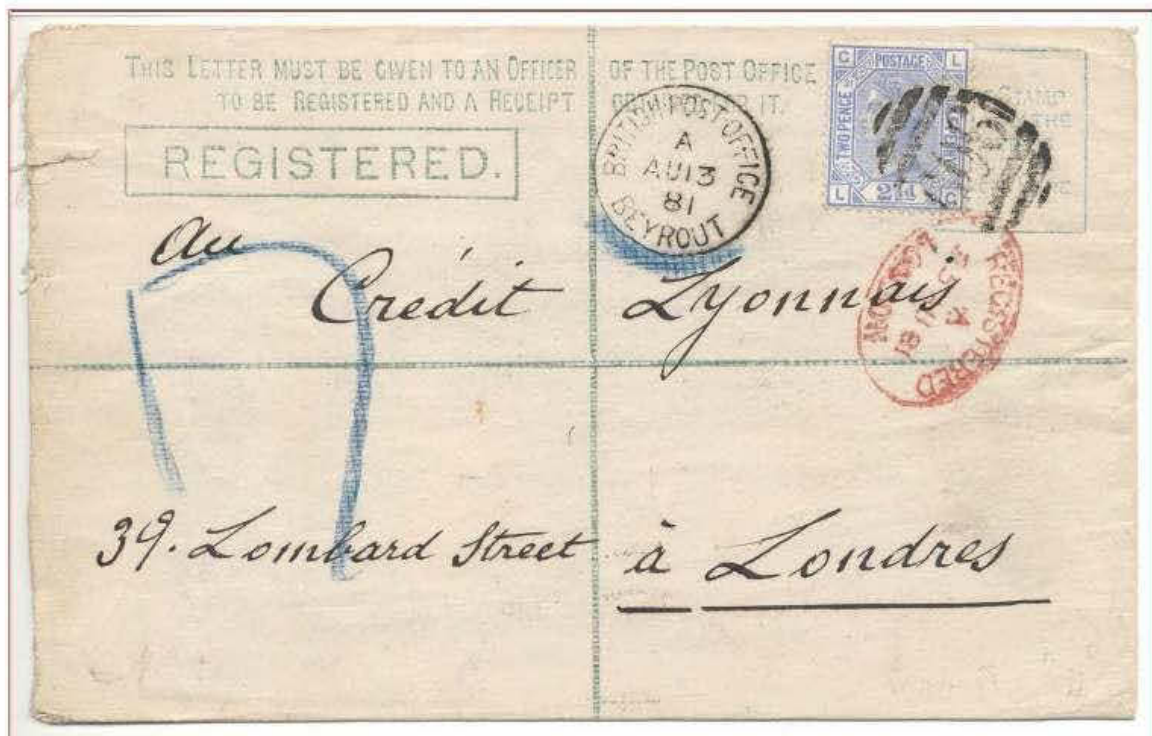 THIS LETTER MUST BE GIVEN TO AN OFFICER OF THE POST OFFICE
TO BE REGISTERED AND A RECEIPT IT.
REGISTERED.
BRITISH POST OFFICE
A
AU 13
81
BEYROUT
C POSTAGE L
TWO PENCE
L 2½d C
STAMP
THE
REGISTERED
A
81
au
Crédit Lyonnais
39. Lombard Street à Londres